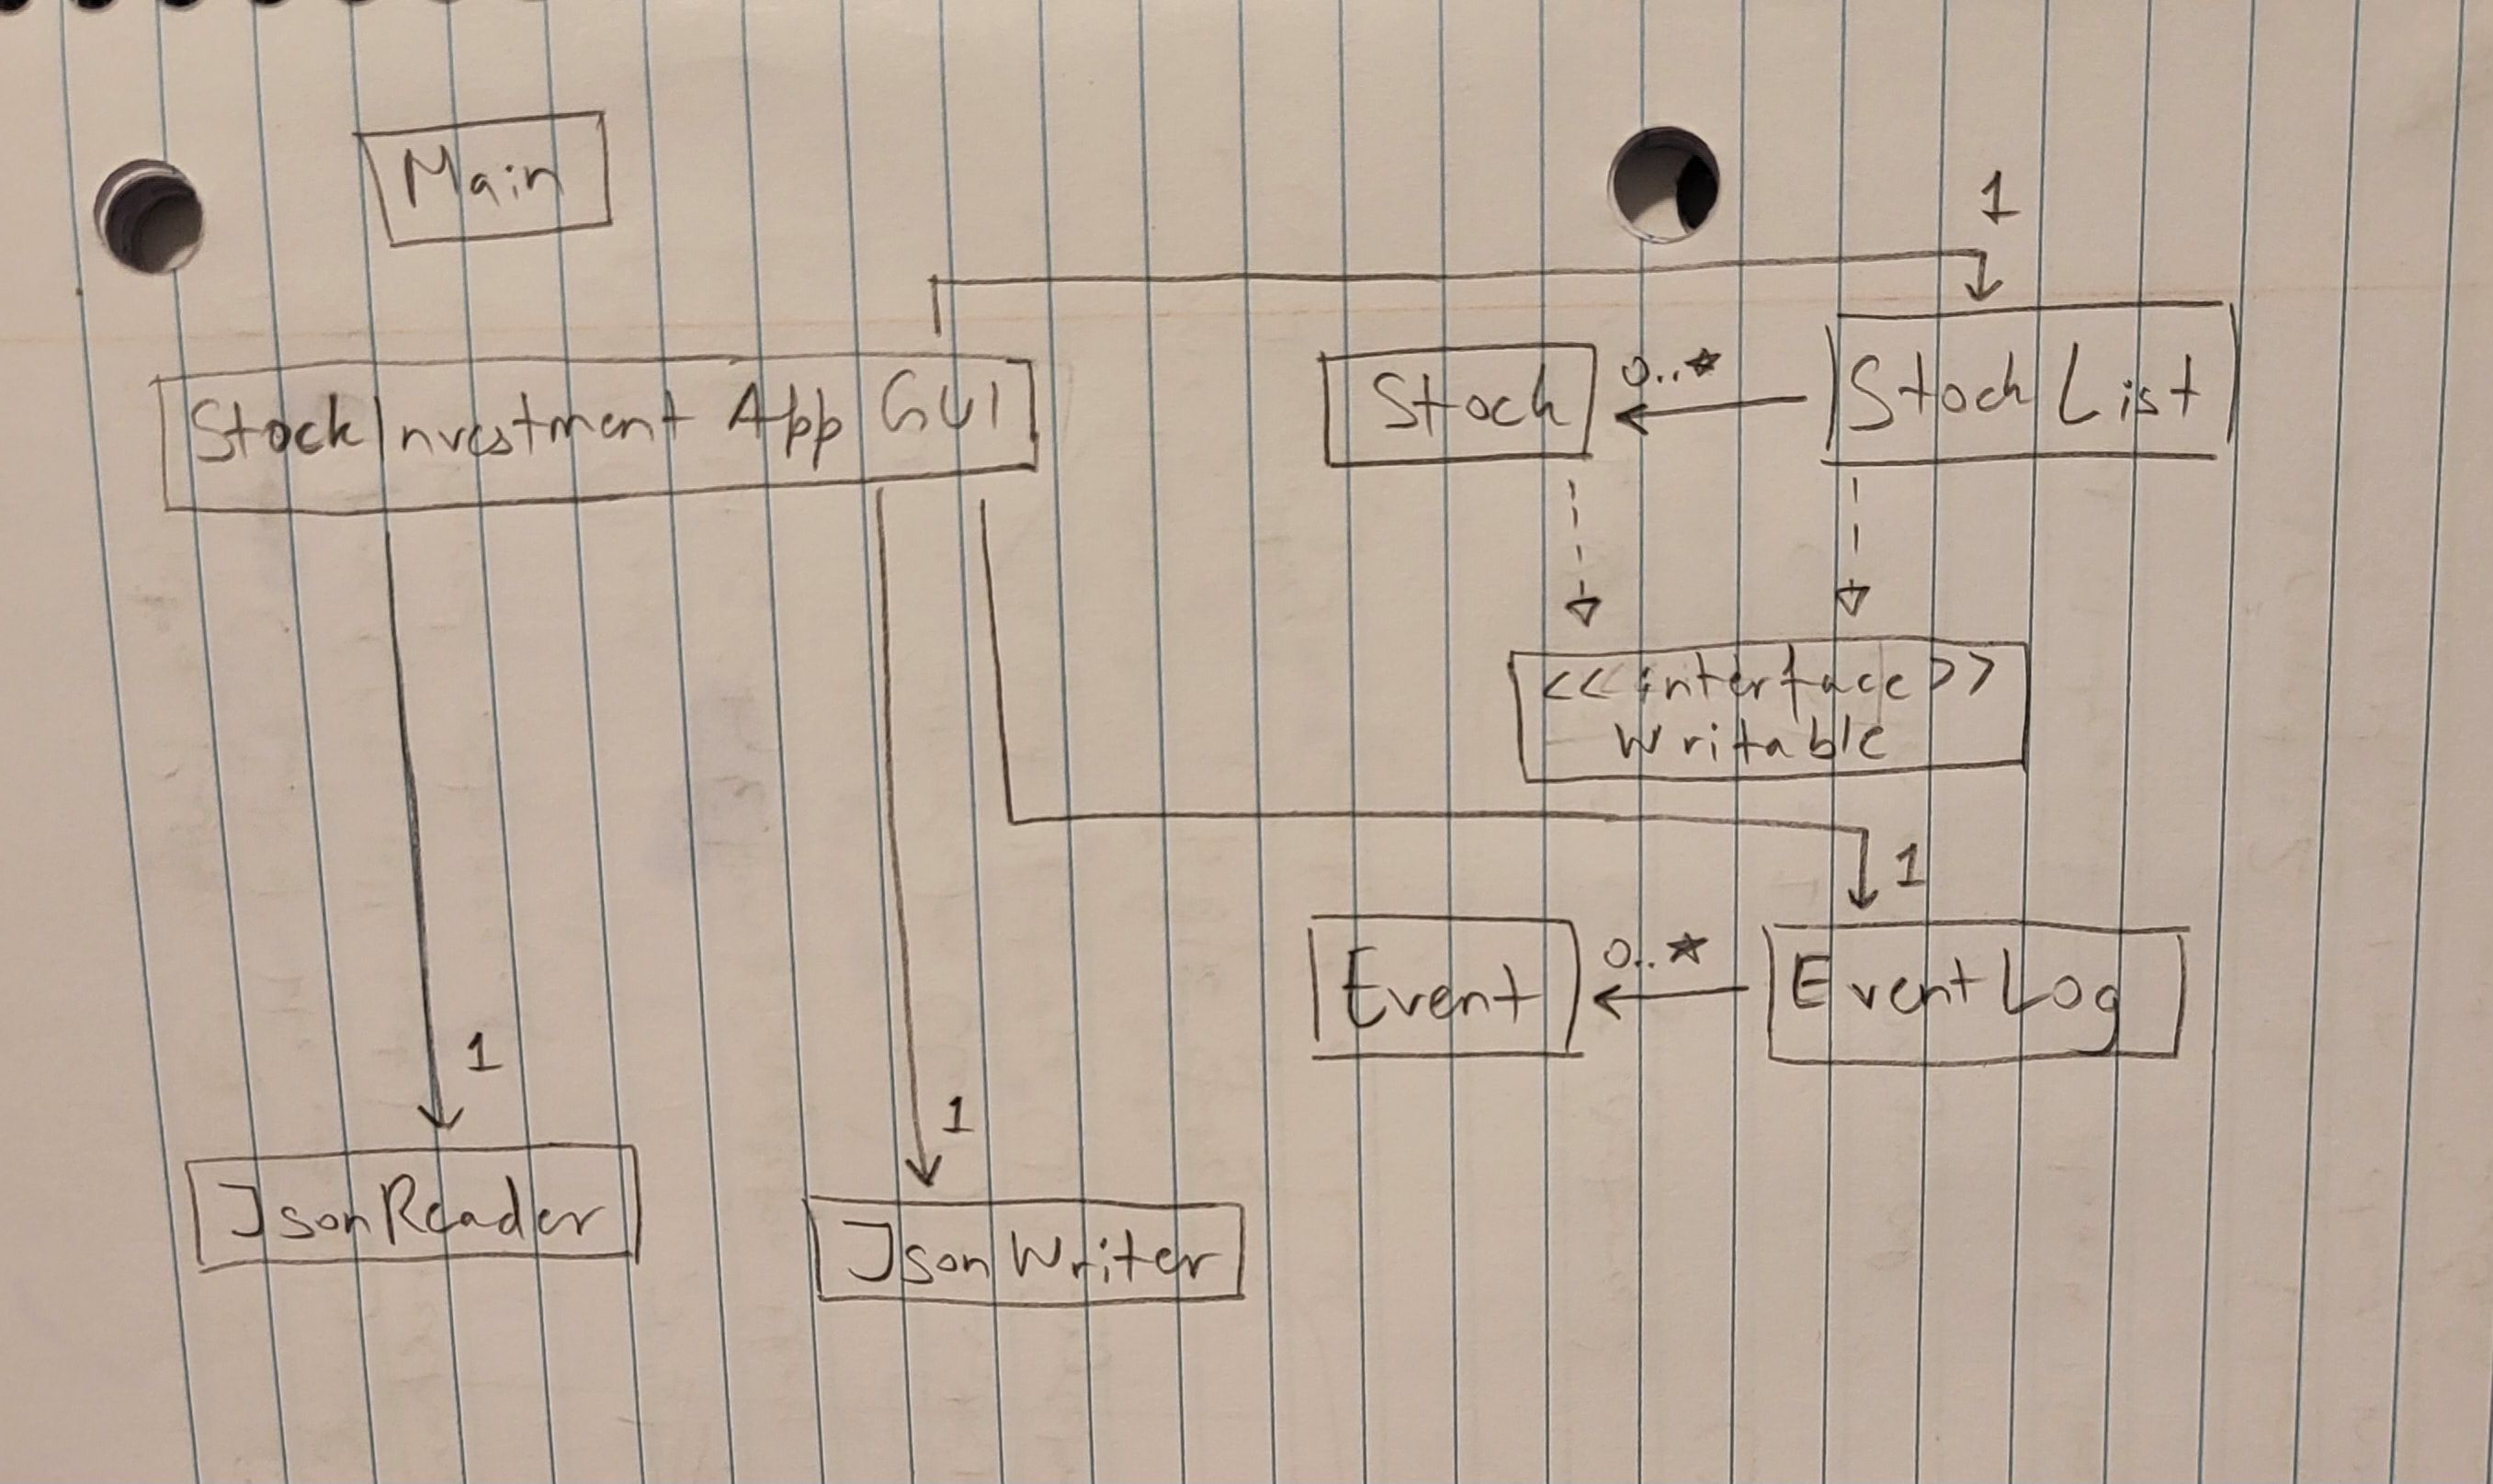 Main
1
StockInvestment App GUI
Stock
0..*
Stock List
<<interface>>
Writable
1
Event
0..*
EventLog
1
JsonReader
1
JsonWriter